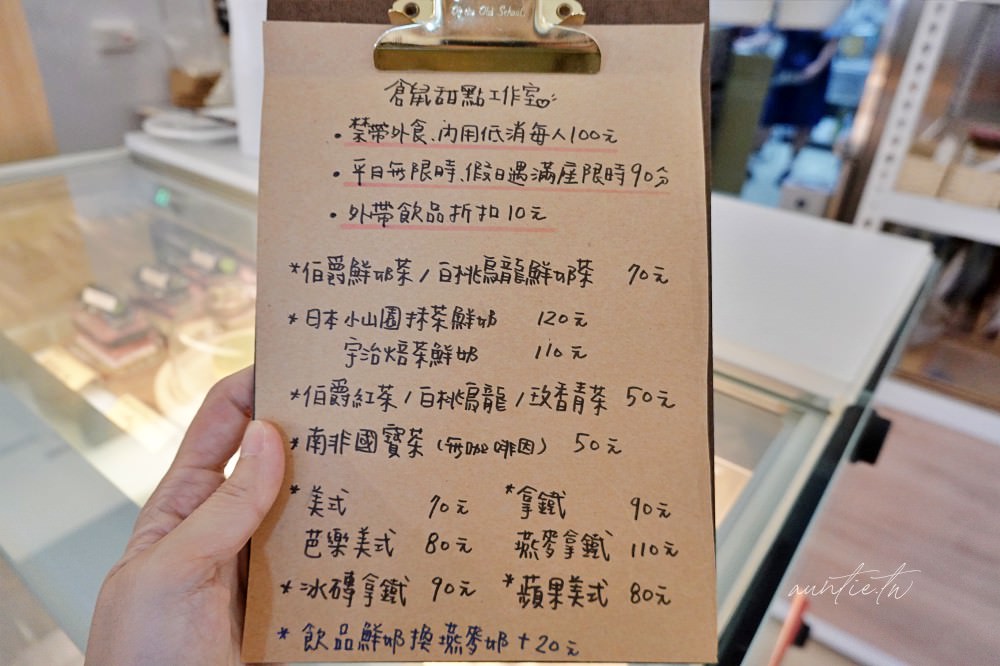 Up the Old School.
倉鼠甜點工作室
• 禁帶外食、內用低消每人100元
• 平日無限時、假日遇滿座限時90分
• 外帶飲品折扣10元
*伯爵鮮奶茶/白桃烏龍鮮奶茶 70元
*日本小山園抹茶鮮奶 120元
宇治焙茶鮮奶 110元
*伯爵紅茶/白桃烏龍/玫香青茶 50元
*南非國寶茶(無咖啡因) 50元
*美式 70元 *拿鐵 90元
芭樂美式 80元 燕麥拿鐵 110元
*冰磚拿鐵 90元 *蘋果美式 80元
* 飲品鮮奶換燕麥奶+20元
auntie.tw